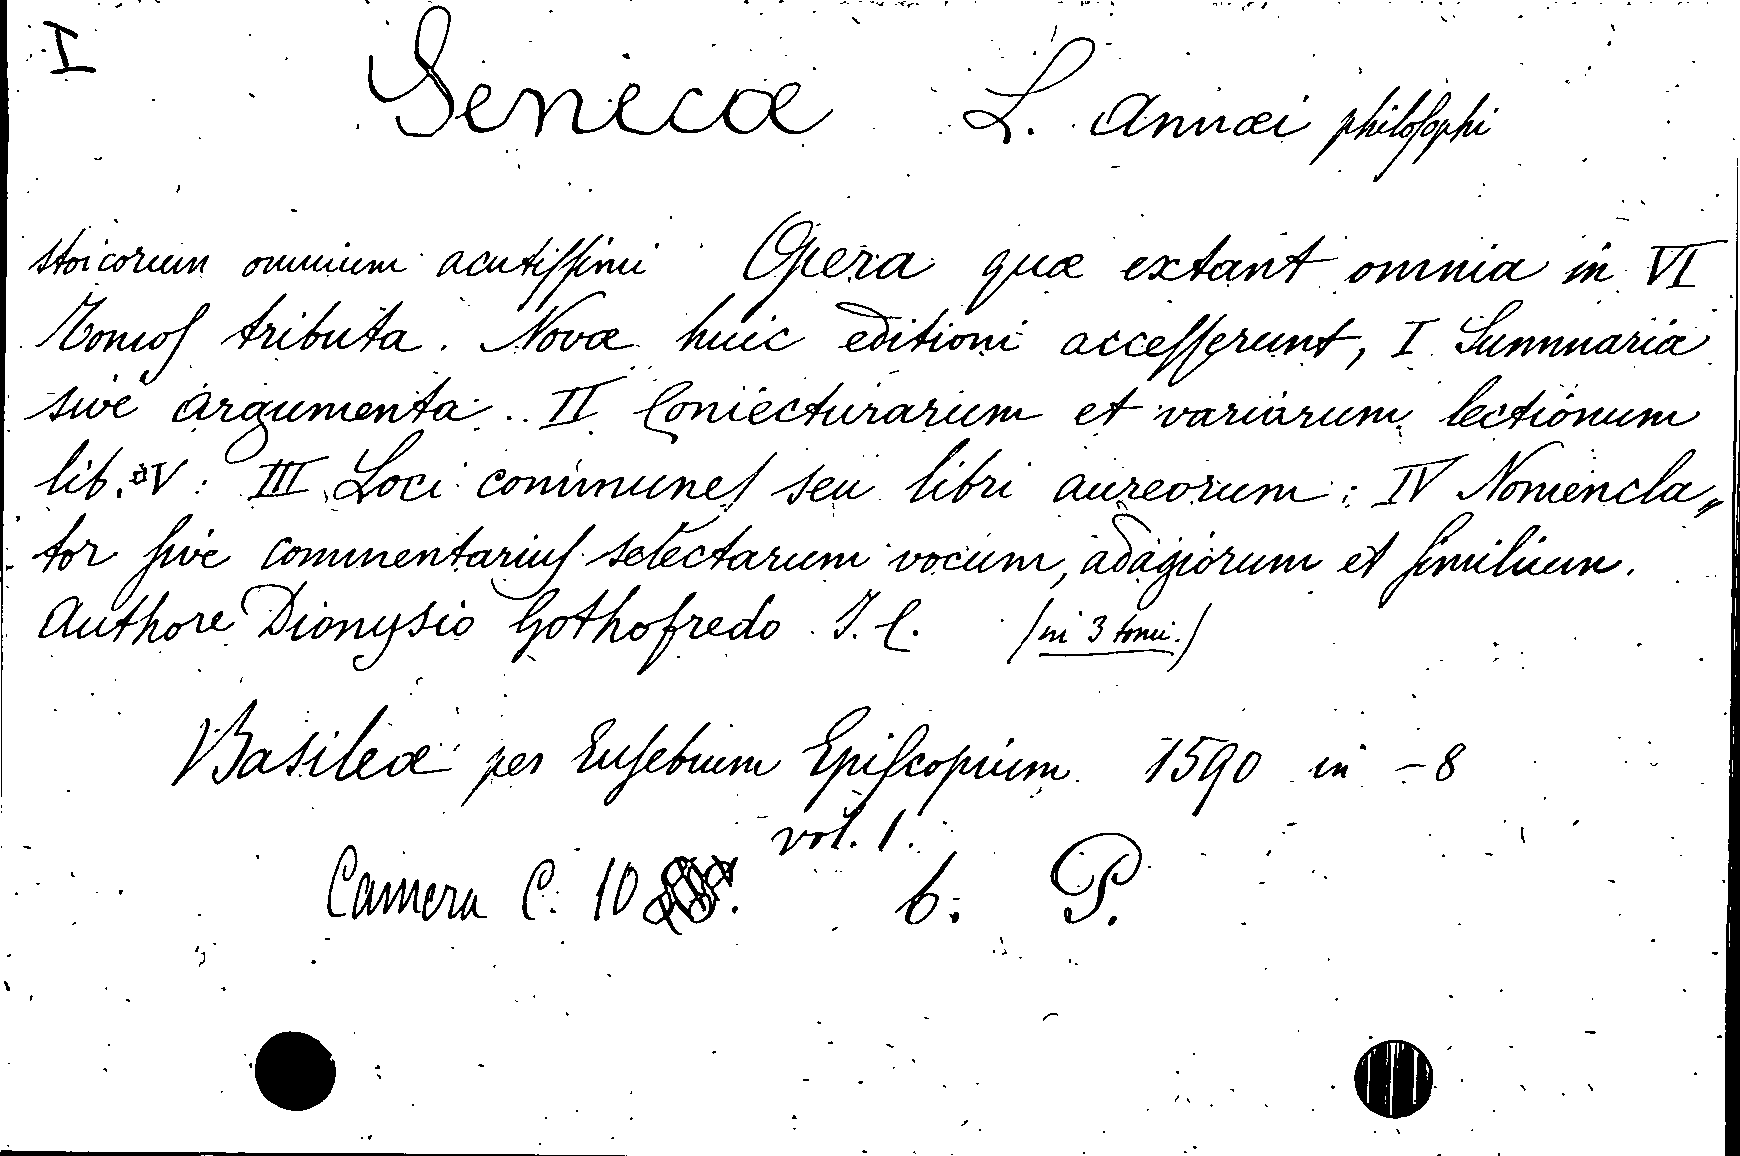 I
Senecæ L. Annæi philosophi
stoicorum omnium acutissimi Opera quæ extant omnia in VI
Tomos tributa. Novæ huic editioni accesserunt, I Summaria
sive argumenta. II Coniecturarum et variarum lectionum
lib. V: III Loci communes seu libri aureorum: IV Nomencla„
tor sive commentarius selectarum vocum, adagiorum et similium.
Authore Dionysio Gothofredo J. C. (in 3 tomi.)
Basileæ per Eusebium Episcopium 1590 in -8
vol. 1.
Camera C. 10 b. P.